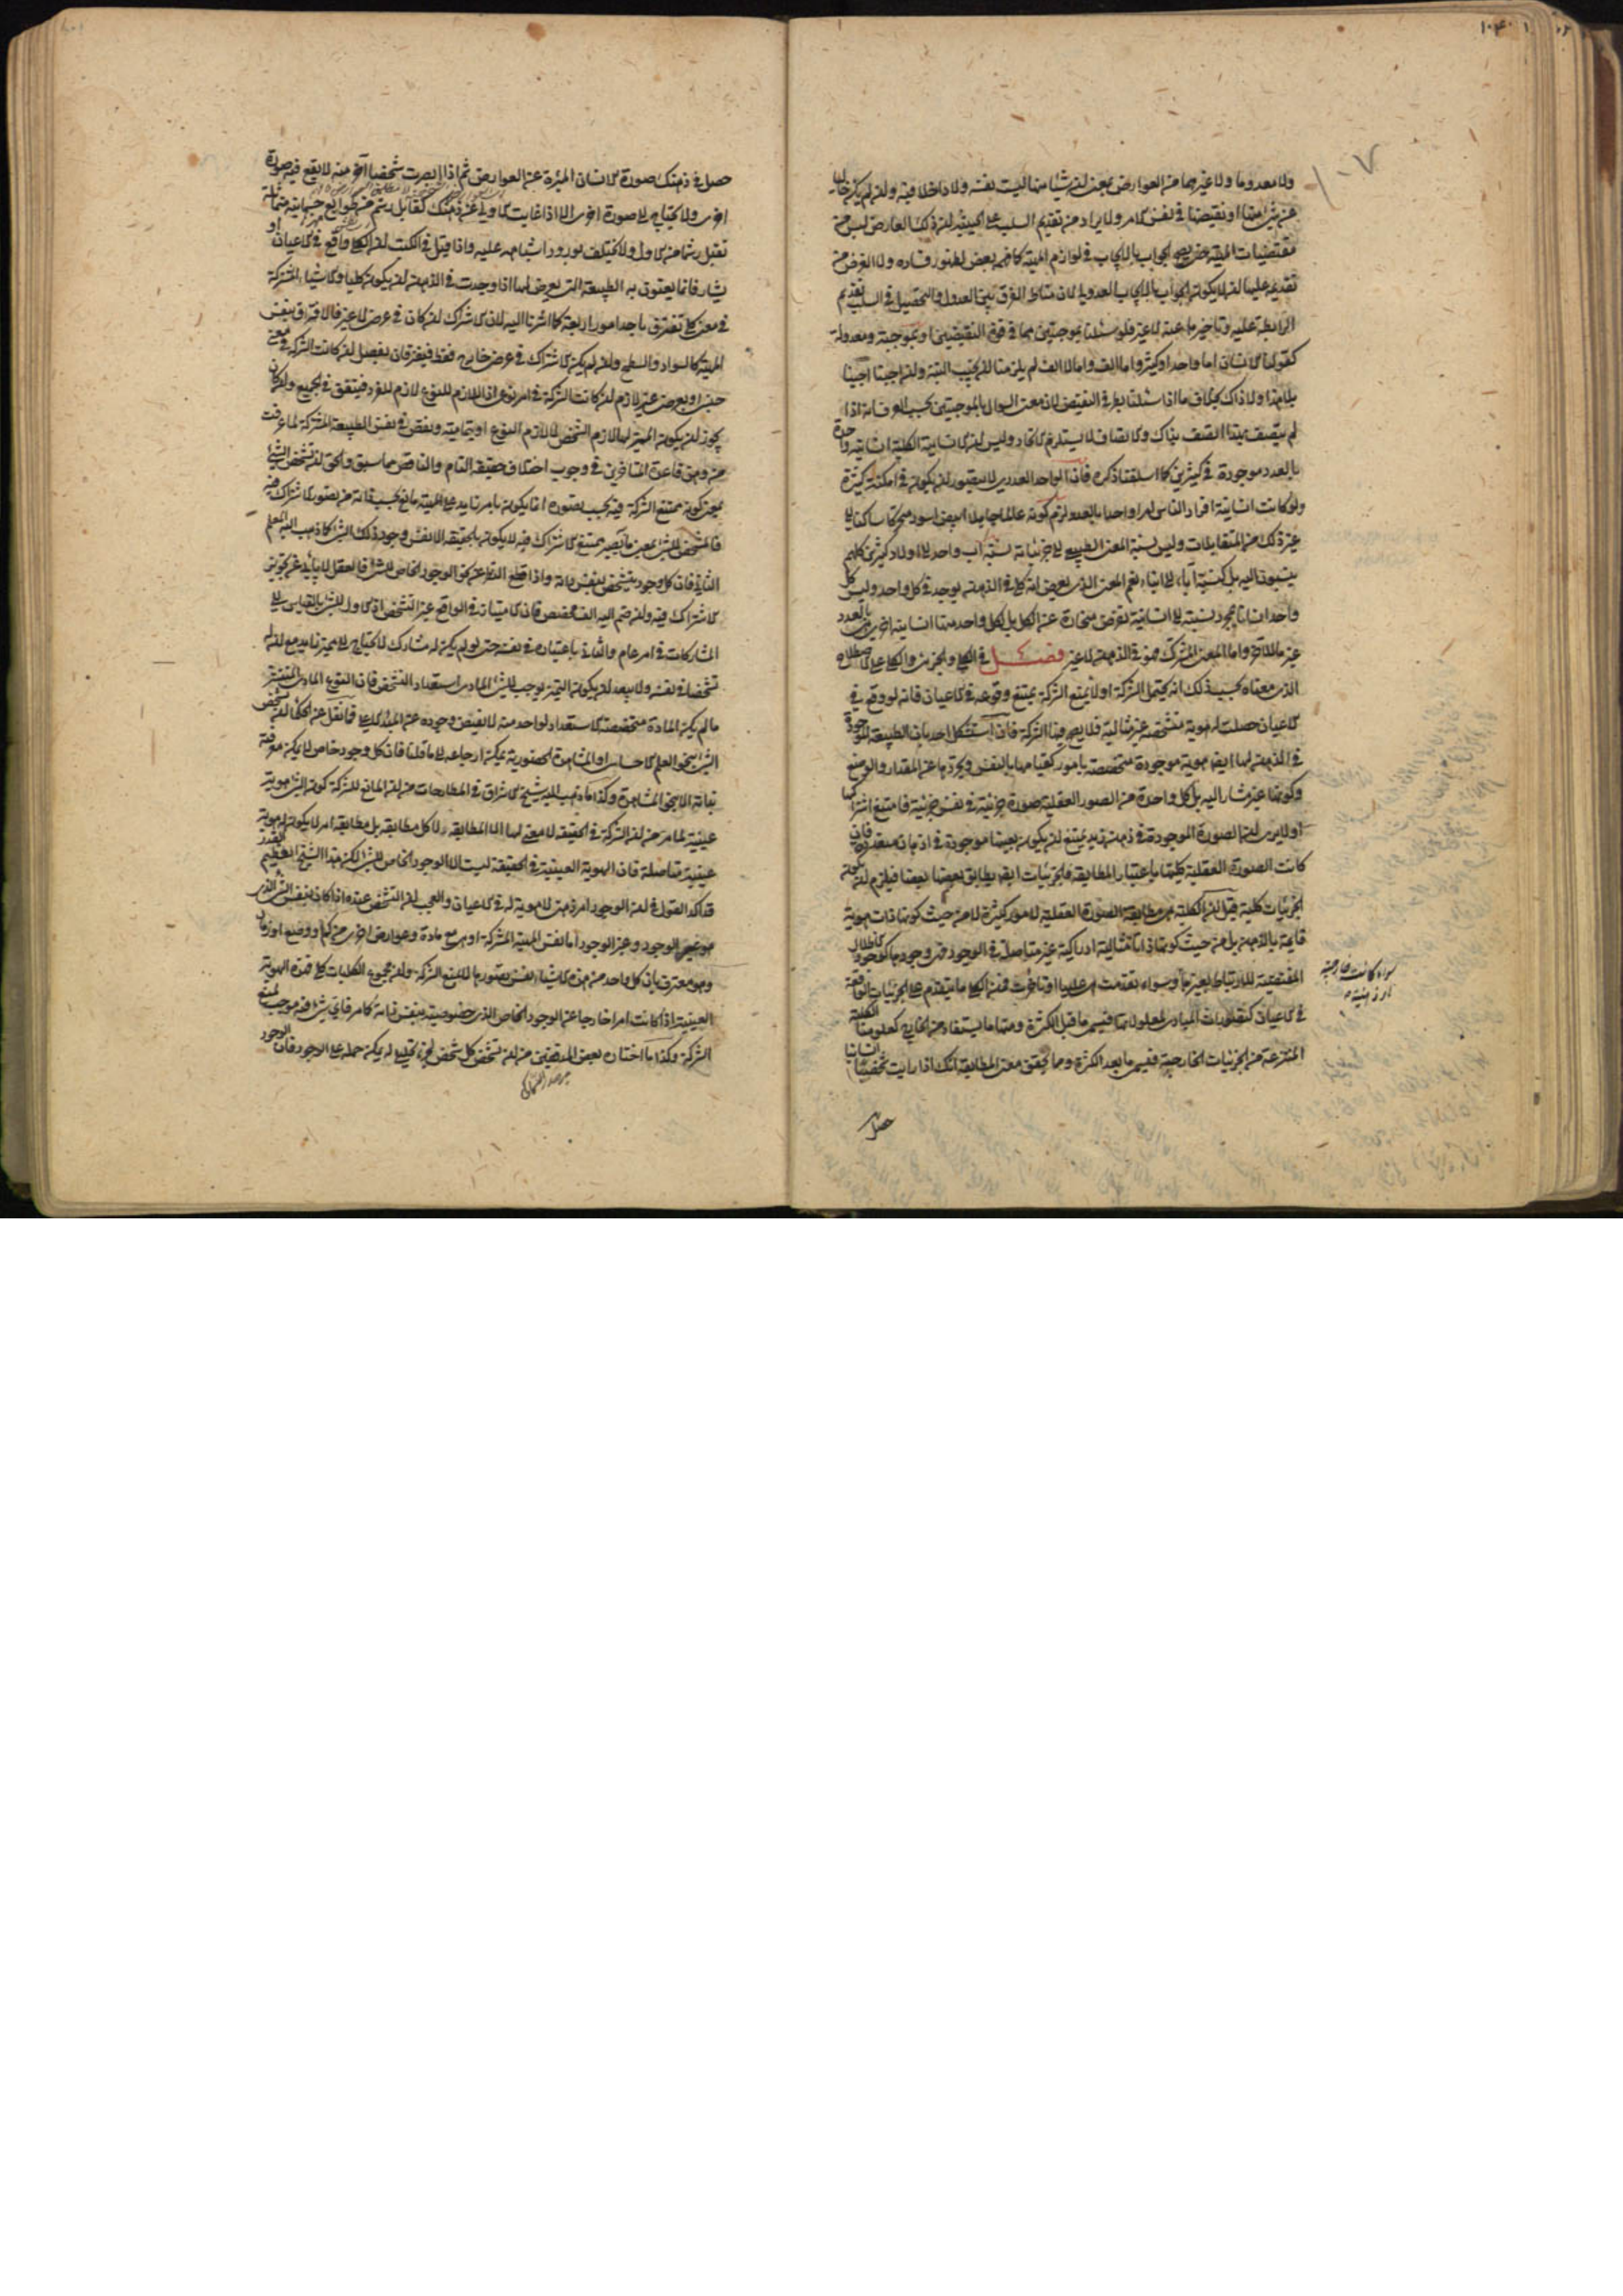 ولا معدوما ولا غيرهما من العوارض بمعنى ان شيئا منها ليست نفسه ولا داخلا فيه وان لم يكن خاليا
عن شئ منها او نقيضها في نفس الامر ولا يراد من تقديم السلب على الحيثية ان ذلك العارض ليس من
مقتضيات المهية حتى يصح الجواب بالايجاب في لوازم المهية كما فهمه بعض لظهور فساده ولا الغرض من
تقديمه عليها ان لا يكون الجواب بالايجاب العدولي لان مناط الفرق بين العدول والتحصيل في السلب تقديم
الرابطة عليه وتاخيرها عنه لا غير فلو سئلنا بموجبتين هما في قوة النقيضين او بموجبة ومعدولة
كقولنا الانسان اما واحد او كثير واما الف واما لا الف لم يلزمنا ان نجيب البتة وان اجبنا اجبنا
بلا هذا ولا ذاك بخلاف ما اذا سئلنا بطرفي النقيض لان معنى السوال بالموجبتين بحسب العرف انه اذا
لم يتصف بهذا اتصف بذاك والاتصاف لا يستلزم الاتحاد وليس ان الانسانية الكلية انسانية واحدة
بالعدد موجودة في كثيرين كما اسلفنا ذكره فان الواحد العددي لا يتصور ان يكون في امكنة كثيرة
ولو كانت انسانية افراد الناس امرا واحدا بالعدد لزم كونه عالما جاهلا ابيض اسود متحركا ساكنا الى
غير ذلك من المتقابلات وليس نسبة المعنى الطبيعي الى جزئياته نسبة اب واحد الى اولاد كثيرين كلهم
ينسبون اليه بل كنسبة آباء الى ابناء نعم المعنى الذي يعرض انه كلي في الذهن يوجد في كل واحد وليس كل
واحد انسانا بمجرد نسبته الى انسانية تفرض منحازة عن الكل بل لكل واحد منها انسانية اخرى هي بالعدد
غير ما للاخر واما المعنى المشترك فهو في الذهن لا غير فصل في الكلي والجزئي والكلي على الاصطلاح
الذي معناه بحسب ذلك انه يحتمل الشركة او لا يمنع الشركة يمتنع وقوعه في الاعيان فانه لو وقع في
الاعيان حصلت له هوية متشخصة غير مثالية فلا يصح فيها الشركة فان استشكل احد بان الطبيعة الموجودة
في الذهن لها ايضا هوية موجودة متخصصة بامور كقيامها بالنفس وتجردها عن المقدار والوضع
وكونها غير مشار اليه بل كل واحدة من الصور العقلية صورة جزئية في نفس جزئية فامتنع اشتراكها
اولا يرى ان الصورة الموجودة في ذهن زيد يمتنع ان يكون بعينها موجودة في اذهان متعددة فان
كانت الصورة العقلية كليتها باعتبار المطابقة فالجزئيات ايضا يطابق بعضها بعضا فيلزم ان يكون
الجزئيات كلية قيل ان الكلية هي مطابقة الصورة العقلية لامور كثيرة لا من حيث كونها ذات هوية
قايمة بالذهن بل من حيث كونها ذاتا مثالية ادراكية غير متاصلة في الوجود فهي وجودها كوجود الاظلال
المقتضية للارتباط بغيرها وسواء تقدمت هي عليها او تاخرت فمن الكلي ما يتقدم على الجزئيات الواقعة
في الاعيان كتصورات المبادي لمعلولاتها فيسمى ما قبل الكثرة ومنها ما يستفاد من الخارج كعلومنا الكلية
المنتزعة من الجزئيات الخارجية فيسمى ما بعد الكثرة ومما يحقق معنى المطابقة انك اذا رايت شخصا انسانيا
سواء كانت خارجية
او ذهنية
حصل
حصل في ذهنك صورة الانسان المبراة عن العوارض ثم اذا ابصرت شخصا آخر منه لا يقع فيه صورة
اخرى ولا يحتاج الى صورة اخرى الا اذا غابت الاولى عن ذهنك كقابل رشم من طوابع جسمانية متماثلة
تقبل رشما من الاول ولا يختلف بورود اشباهه عليه واذا قيل في الكتب ان الكلي واقع في الاعيان او
يشار فانما يعنون به الطبيعة التي يعرض لها اذا وجدت في الذهن ان يكون كليا والاشياء المشتركة
في معنى كلي تفترق باحد امور اربعة كما اشرنا اليه لان الاشتراك ان كان في عرض لا غير فالافتراق بنفس
المهية كالسواد والسطح وان لم يكن الاشتراك في عرض خارج فقط فيفترقان بفصل ان كانت الشركة في معنى
جنسي او بعرض غير لازم ان كانت الشركة في امر نوعي اذ اللازم للنوع لازم للفرد فيتفق في الجميع وان كان
يجوز ان يكون المميز لها لازم الشخص لا لازم النوع او بتمامية ونقص في نفس الطبيعة المشتركة لما عرفت
من وهن قاعدة المتاخرين في وجوب اختلاف حقيقة التام والناقص مما سبق والحق ان تشخص الشئ
بمعنى كونه ممتنع الشركة فيه بحسب نفس تصوره انما يكون بامر زايد على المهية مانع بحسب ذاته من تصور الاشتراك فيه
فالمشخص للشئ بمعنى ما به يصير ممتنع الاشتراك فيه لا يكون بالحقيقة الا نفس وجود ذلك الشئ كما ذهب اليه المعلم
الثاني فان كل وجود متشخص بنفس ذاته واذا قطع النظر عن نحو الوجود الخاص للشئ فالعقل لا يابى عن تجويز
الاشتراك فيه وان ضم اليه الف مخصص فان الامتياز في الواقع غير التشخص اذ الاول للشئ بالقياس الى
المشاركات في امر عام والثاني باعتباره في نفسه حتى لو لم يكن له مشارك لا يحتاج الى مميز زايد مع ان له
تشخصا في نفسه ولا يبعد ان يكون التميز يوجب للشئ المادي استعداد التشخص فان النوع المادي المنتشر
ما لم يكن المادة متخصصة الاستعداد لواحد منه لا يفيض وجوده عن المبدء الاعلى فما نقل عن الحكماء ان تشخص
الشئ بنحو العلم الاحساسي او المشاهدة الحضورية يمكن ارجاعه الى ما قلنا فان كل وجود خاص لا يمكن معرفته
بذاته الا بنحو المشاهدة وكذا ما ذهب اليه شيخ الاشراق في المطارحات من ان المانع للشركة كون الشئ هوية
عينية لما مر من ان الشركة في الحقيقة لا معنى لها الا المطابقة ولا كل مطابقة بل مطابقة امر لا يكون له هوية
عينية متاصلة فان الهوية العينية في الحقيقة ليست الا الوجود الخاص للشئ لكن هذا الشيخ العظيم القدر
قد اكد القول في ان الوجود امر ذهني لا هوية له في الاعيان والعجب ان التشخص عنده اذا كان بنفس الشئ الذي
هو غير الوجود وغير الوجود اما نفس المهية المشتركة او هي مع مادة وعوارض اخرى من كم او وضع او زمان
وهو معترف بان كل واحد من هذه الاشياء نفس تصورها لا يمنع الشركة وان مجموع الكليات كلي فهذه الهوية
العينية اذا كانت امرا خارجا عن الوجود الخاص الذي خصوصيته بنفس ذاته كما مر فاي شئ فيه موجب لمنع
الشركة وكذا ما اختاره بعض المدققين من ان تشخص كل شخص لجزء تحليلي له يمكن حمله على الوجود فان